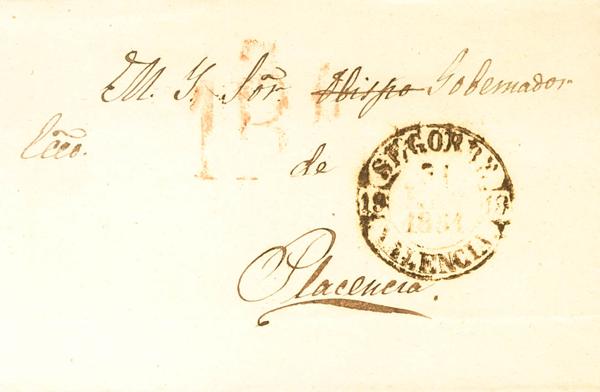 M. Y. Sōr. Obispo Gobernador
Ecco.
de
Placencia.
SEGORBE
18 18
1851
VALENCIA